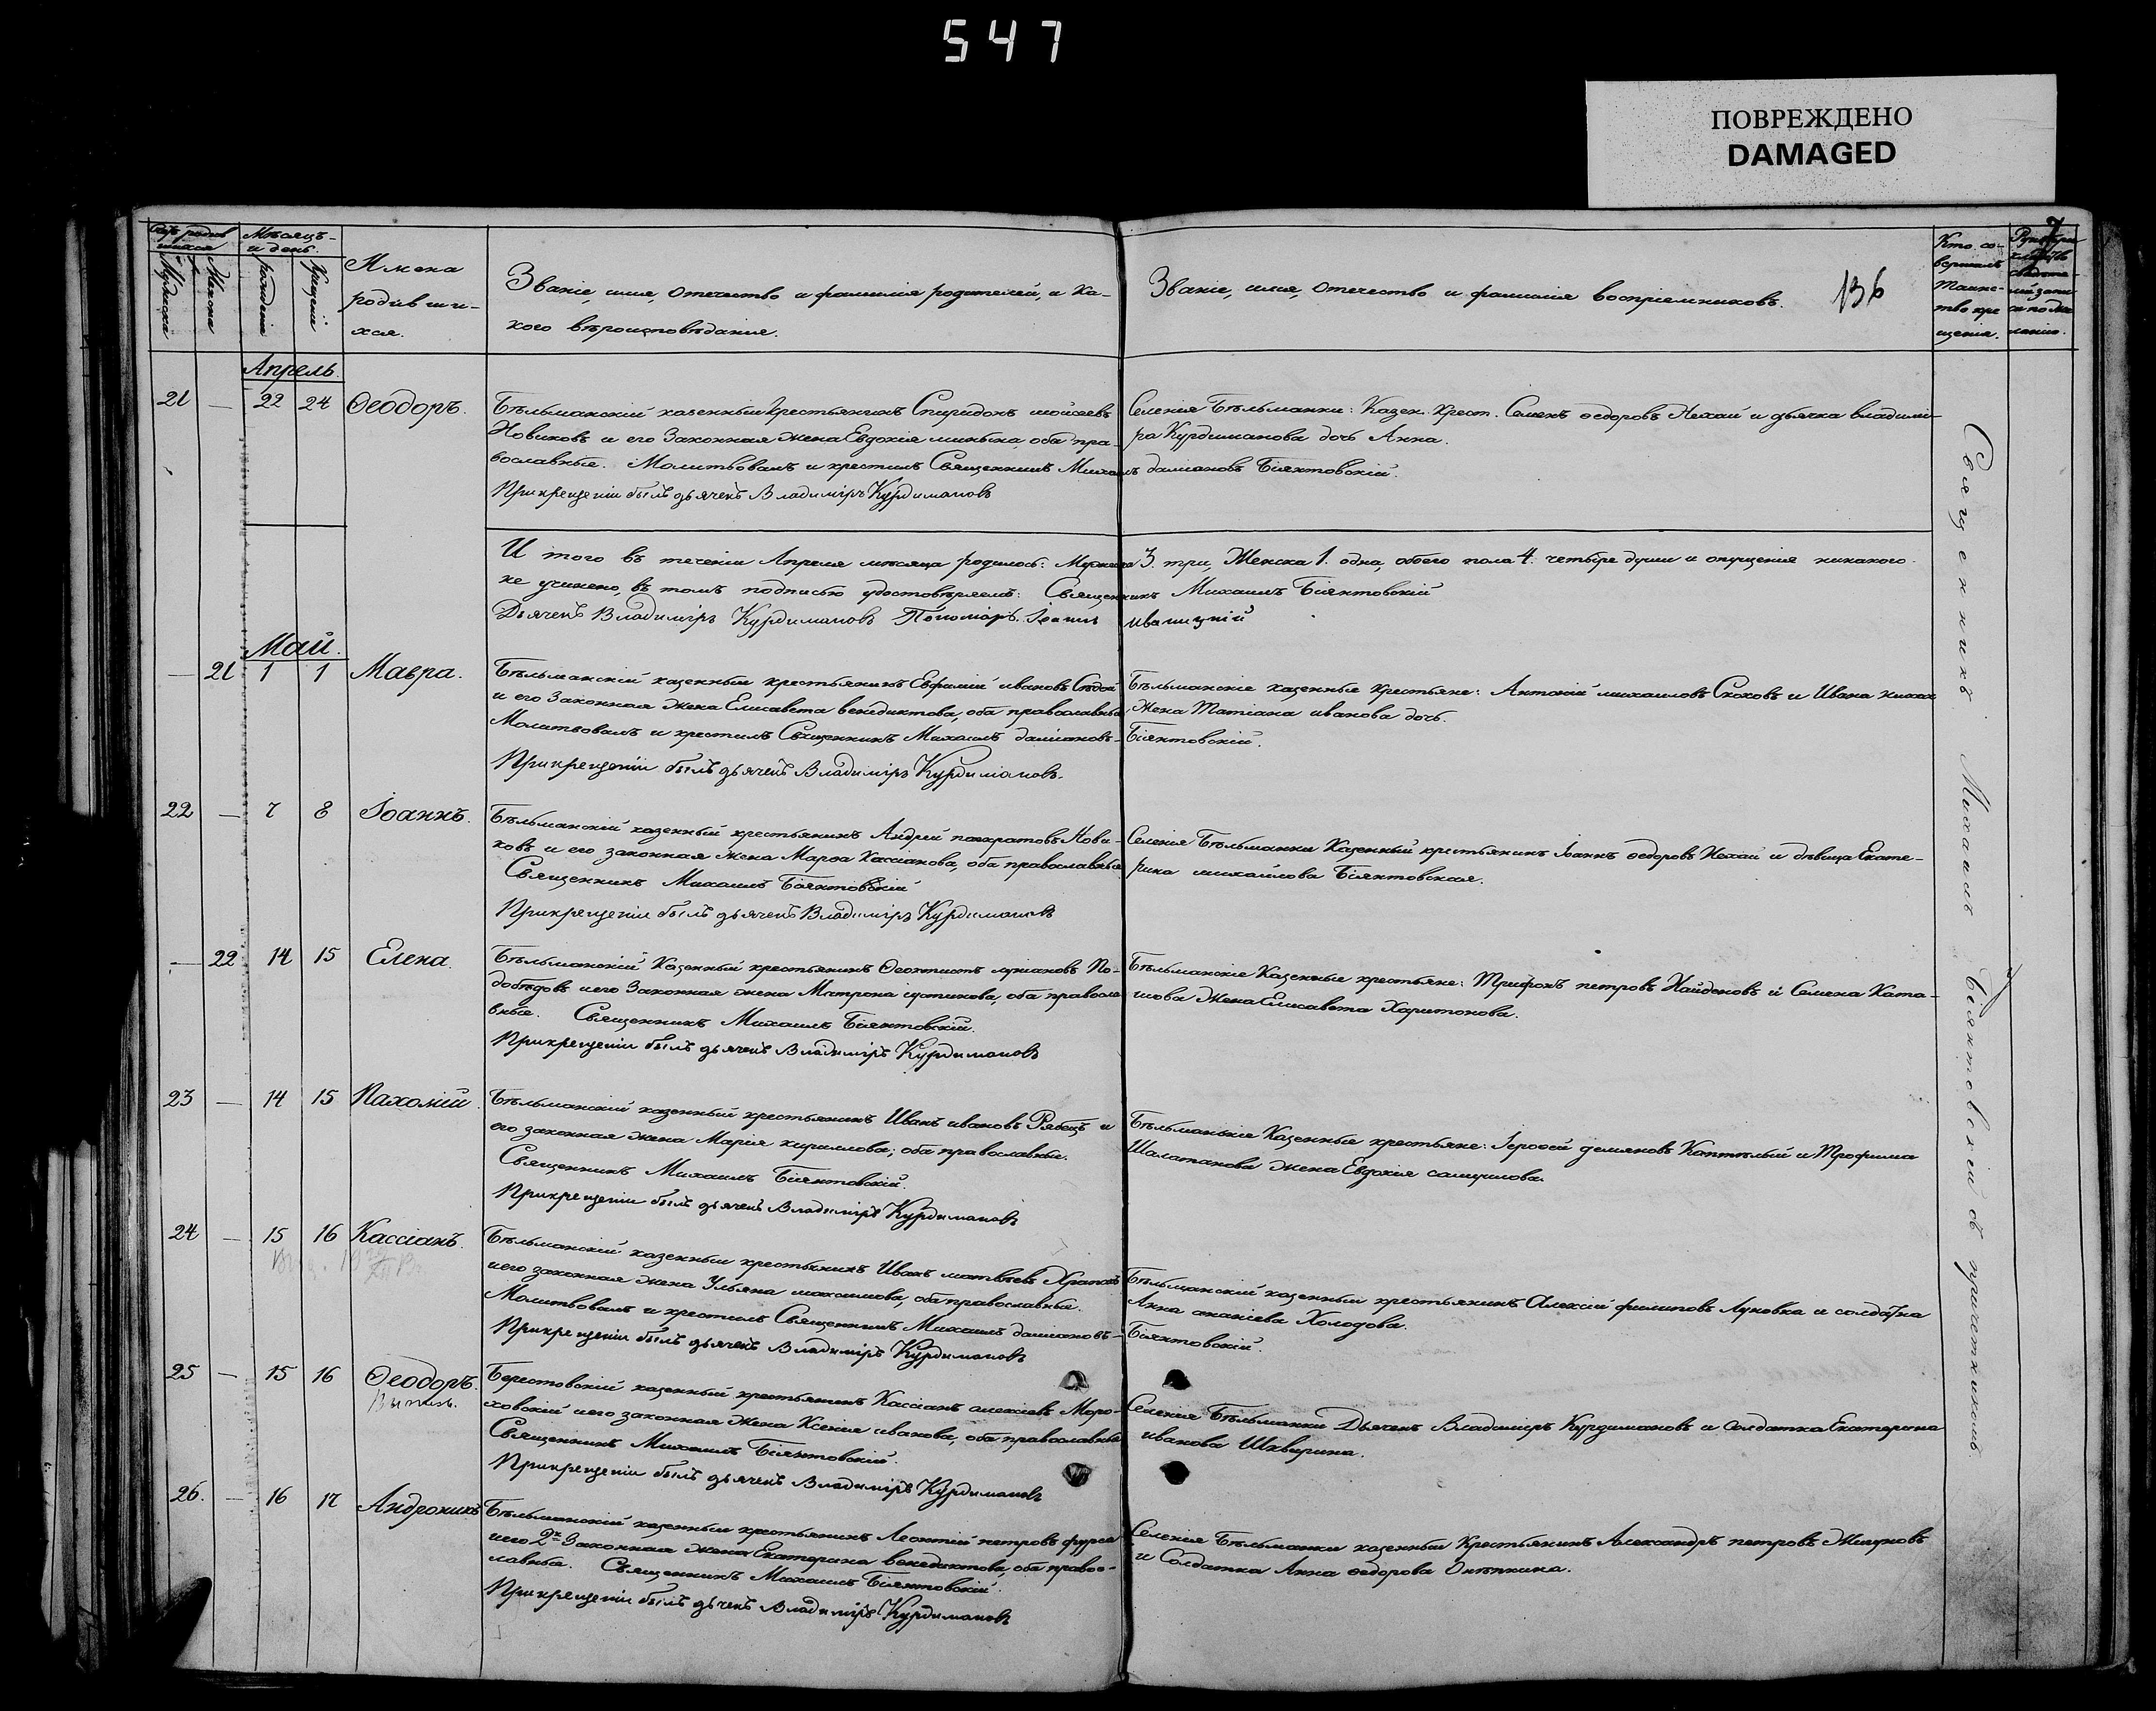 547
ПОВРЕЖДЕНО
DAMAGED
7
Счетъ родив
шихся
Мужеска
Женска
Мѣсяцъ
и день.
рожденія
Крещенія
Имена
родивши-
хся.
Званіе, имя, отечество и фамилія родителей, и ка-
кого вѣроисповѣданія.
Званіе, имя, отечество и фамилія воспріемниковъ.
136
Кто со-
вершалъ
таинс-
тво кре
щенія.
Апрель.
21 — 22 24 Ѳеодоръ.
Бѣльманскій казенный крестьянинъ Спиридонъ мойсеевъ
Новиковъ и его Законная жена Евдокія минына, оба пра-
вославные. Молитвовалъ и крестилъ Священникъ Михаилъ даміановъ Біянтовскій.
При крещеніи былъ дьячекъ Владиміръ Курдимановъ
Селенія Бѣльманки: Казен. Крест. Семенъ ѳедоровъ Нехай и дьячка владими-
ра Курдиманова дочь Анна.
И того въ теченіи Апреля месяца родилось: Мужеска 3. три, Женска 1. одна, обоего пола 4. четыре души и опущенія никакого
не учинено, въ томъ подписью удостовѣряемъ: Священникъ Михаилъ Біянтовскій
Дьячекъ Владиміръ Курдимановъ Пономарь Іоаннъ Иваницкій
Май.
— 21 1 1 Мавра.
Бѣльманскій казенный крестьянинъ Евфимій ивановъ Сѣдой
и его Законная жена Елисавета венедиктова, оба православные
Молитвовалъ и крестилъ Священникъ Михаилъ даміановъ- Біянтовскій.
При крещеніи былъ дьячекъ Владиміръ Курдимановъ.
Бѣльманскіе казенные крестьяне: Антоній михаиловъ Скоковъ и Ивана
жена Татіана иванова дочь.
22 — 7 8 Іоаннъ.
Бѣльманскій казенный крестьянинъ Андрей панкратовъ Нови-
ковъ и его законная жена Марѳа Кассіанова, оба православные
Священникъ Михаилъ Біянтовскій
При крещеніи былъ дьячекъ Владиміръ Курдимановъ
Селенія Бѣльманки Казенный крестьянинъ Іоаннъ ѳедоровъ Нехай и дѣвица Екате-
рина михайлова Біянтовская.
— 22 14 15 Елена.
Бѣльманскій Казенный крестьянинъ Ѳеоктистъ лукіановъ По-
добѣдовъ и его Законная жена Матрона іустинова, оба правосла
вные. Священникъ Михаилъ Біянтовскій.
При крещеніи былъ дьячекъ Владиміръ Курдимановъ
Бѣльманскіе Казенные крестьяне: Трифонъ петровъ Найденовъ и Семена Ката-
шова жена Елисавета Харитонова.
23 — 14 15 Пахомій.
Бѣльманскій казенный крестьянинъ Иванъ ивановъ Рябецъ и
его законная жена Марія кирилова; оба православные.
Священникъ Михаилъ Біянтовскій.
При крещеніи былъ дьячекъ Владиміръ Курдимановъ
Бѣльманскіе Казенные крестьяне: Іероѳей демяновъ Коптѣлый и Трофима
Шалапанова жена Евдокія самуилова.
24 — 15 16 Кассіанъ.
Бѣльманскій казенный крестьянинъ Иванъ матвѣевъ Храповъ
и его законная жена Ульяна максимова, оба православные.
Молитвовалъ и крестилъ Священникъ Михаилъ даміановъ- Біянтовскій.
При крещеніи былъ дьячекъ Владиміръ Курдимановъ
Бѣльманскій казенный крестьянинъ Алексій филиповъ Луковка и солдатка
Анна ананіева Холодова.
25 — 15 16 Ѳеодоръ.
Берестовскій казенный крестьянинъ Кассіанъ алексіевъ Моро-
ховскій и его законная жена Ксенія иванова, оба православные
Священникъ Михаилъ Біянтовскій.
При крещеніи былъ дьячекъ Владиміръ Курдимановъ
Селенія Бѣльманки Дьячекъ Владиміръ Курдимановъ и Солдатка Екатерина
иванова Шкварина.
26. — 16 17 Андроникъ
Бѣльманскій казенный крестьянинъ Леонтій петровъ фурса
и его 2я Законная жена Екатерина венедиктова, оба правос-
лавные. Священникъ Михаилъ Біянтовскій.
При крещеніи былъ дьячекъ Владиміръ Курдимановъ
Селенія Бѣльманки казенный Крестьянинъ Александръ петровъ Жигуновъ
и Солдатка Анна ѳедорова
Священникъ Михаилъ Біянтовскій съ причетникомъ.